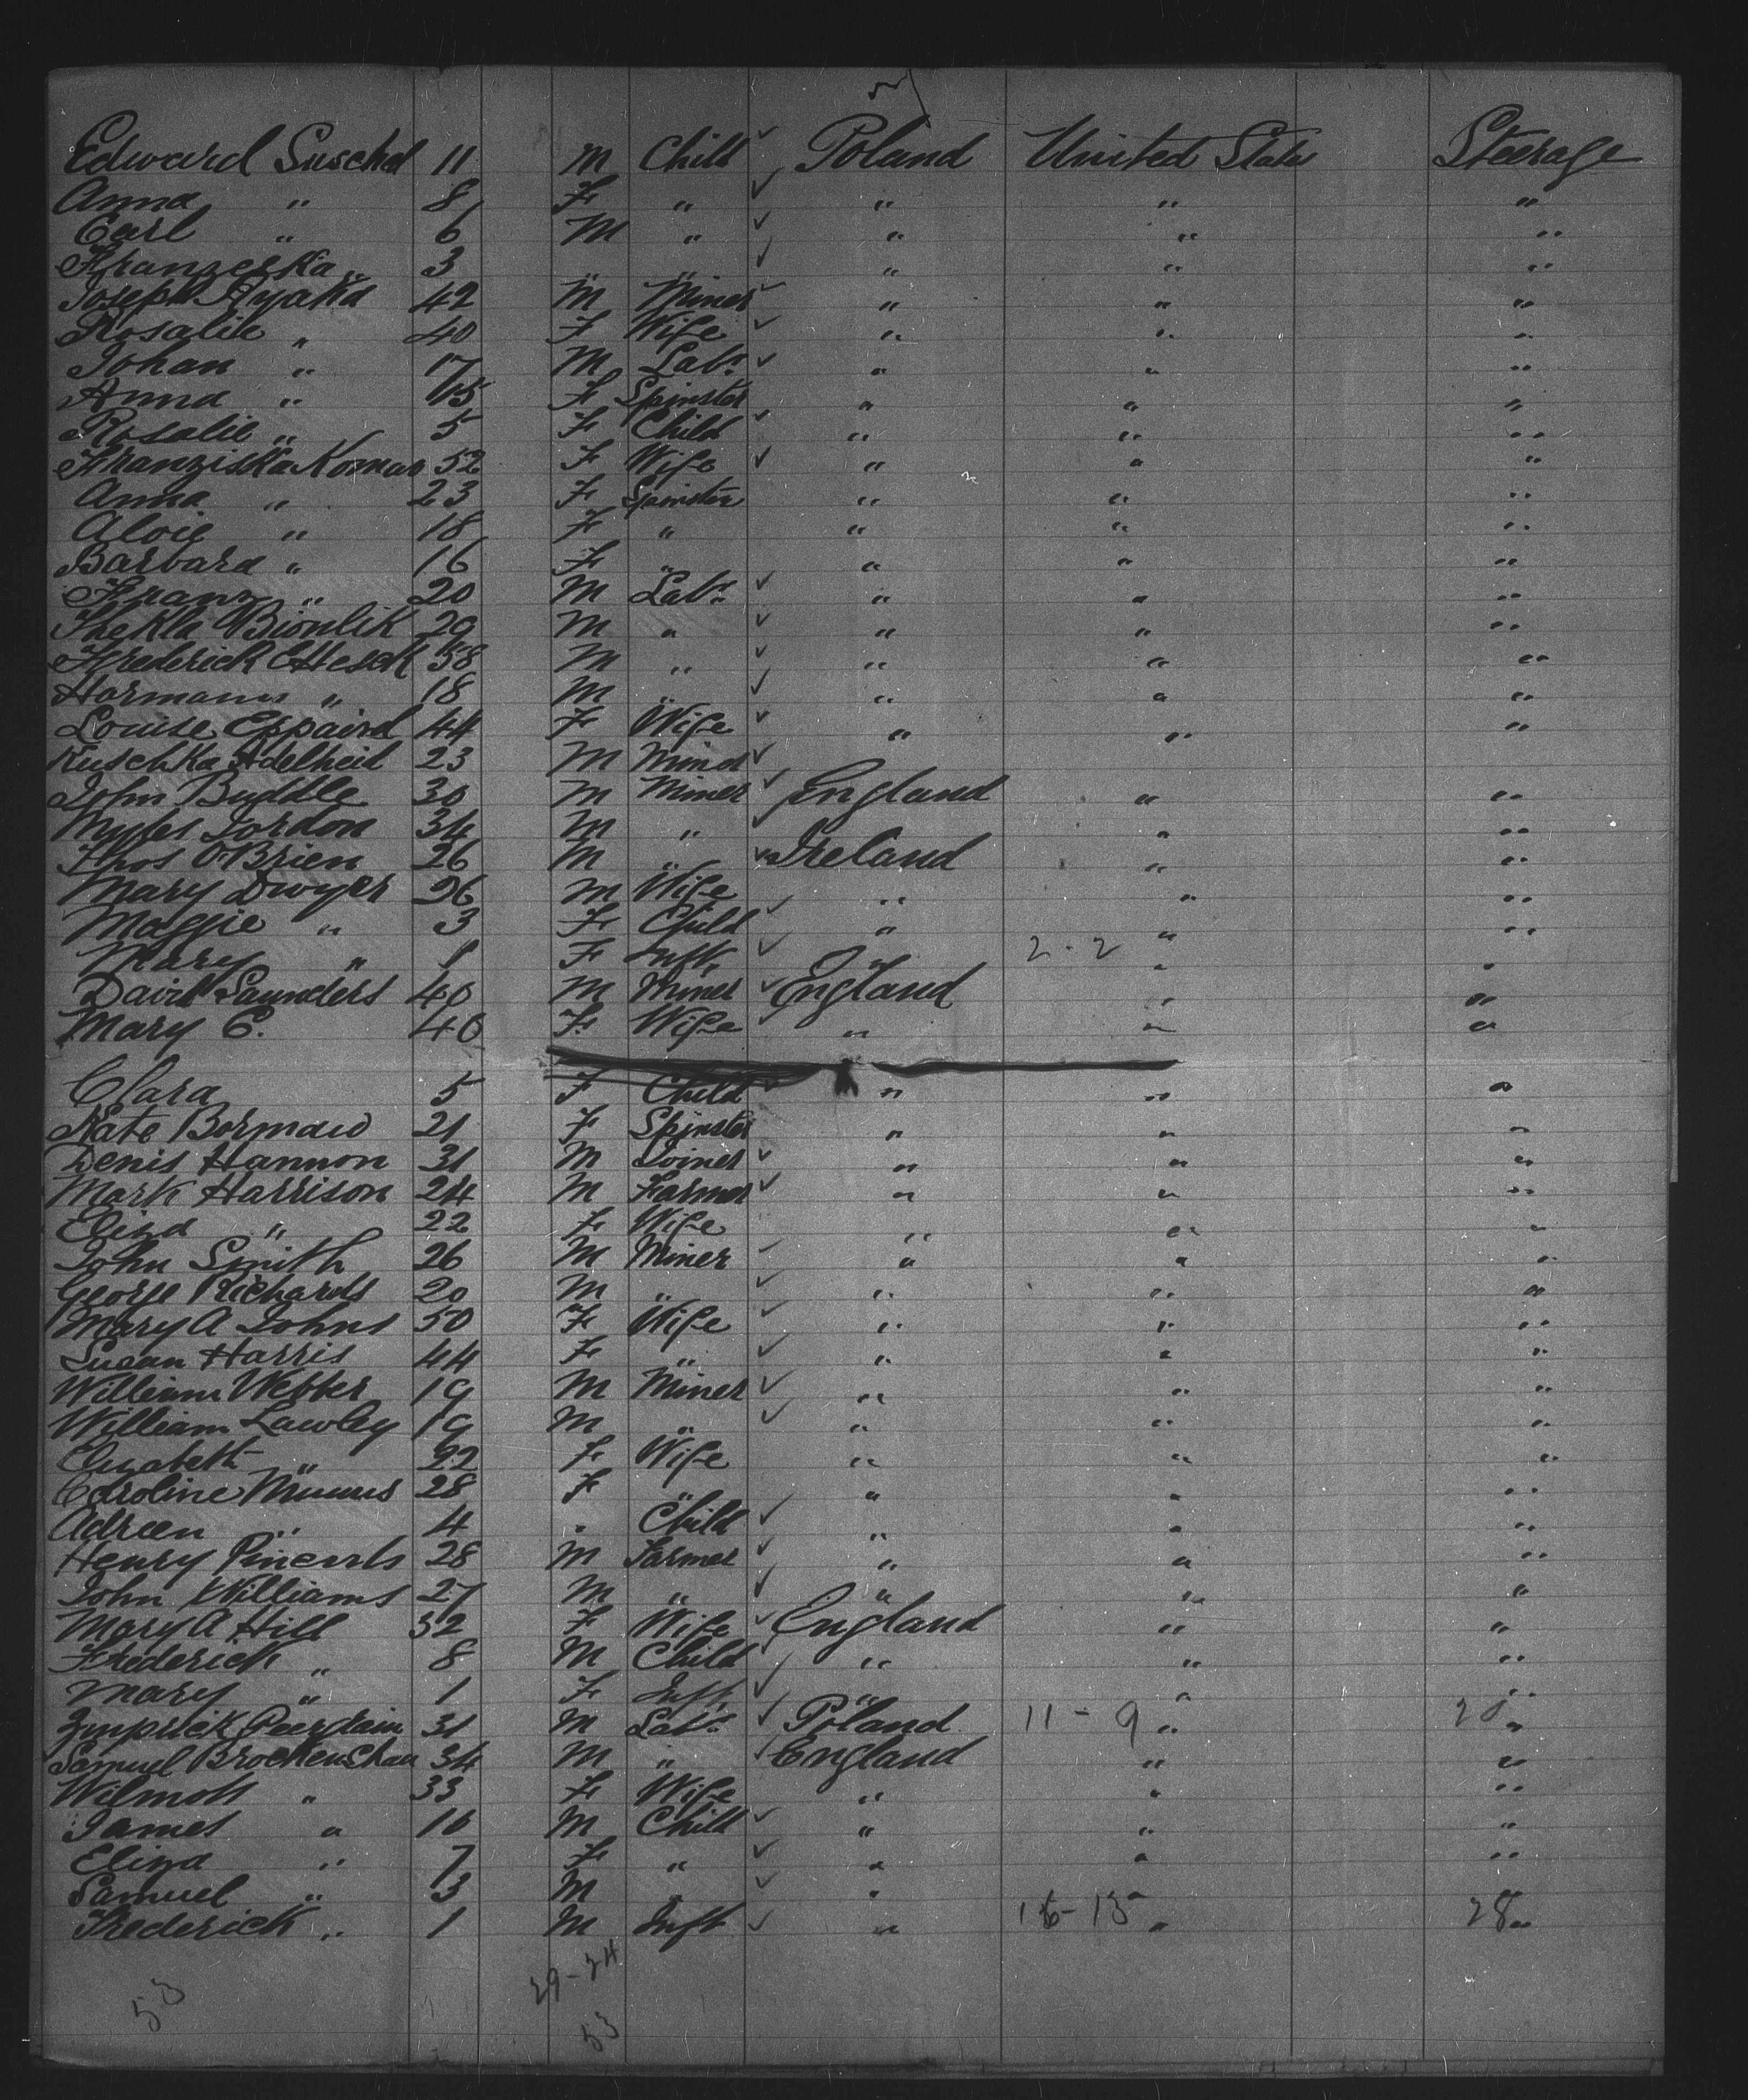 Edward Suschel 11 M Child Poland United States Steerage
Anna " 8 F " " " "
Carl " 6 M " " " "
Franzeska " 3 " " " " "
Joseph Ryaka 42 M Miner " " "
Rosalie " 40 F Wife " " "
Johan " 17 M Labr " " "
Anna " 15 F Spinster " " "
Rosalie " 5 F Child " " "
Franziska Komar 52 F Wife " " "
Anna " 23 F Spinster " " "
Aloie " 18 F " " " "
Barbara " 16 F " " " "
Franz " 20 M Labr " " "
Thekla Bionlik 29 M " " " "
Frederick 58 M " " " "
Harmann " 18 M " " " "
Louise 44 F Wife " " "
Kuschka Adelheid 23 M Miner
John Buddle 30 M Miner England " "
Myles Jordon 34 M " " "
Thos O'Brien 26 M " Ireland " "
Mary Dwyer 26 M Wife " " "
Maggie " 3 F Child " " "
Mary " 1 F Inft " 2-2 " "
David Saunders 40 M Miner England " "
Mary C. 40 F Wife " " "
Clara 5 F Child " " "
Kate Bormaw 21 F Spinster " " "
Denis Hannon 31 M Joiner " " "
Mark Harrison 24 M Farmer " " "
Eliza " 22 F Wife " " "
John Smith 26 M Miner " " "
George Richards 20 M " " " "
Mary A Johns 50 F Wife " " "
Susan Harris 44 F " " " "
William Webber 19 M Miner " " "
William Lawley 19 M " " " "
Elizabeth " 22 F Wife " " "
Caroline 28 F " " " "
Adreen " 4 " Child " " "
Henry 28 M Farmer " " "
John Williams 27 M " " " "
Mary A Hill 32 F Wife England " "
Frederick " 8 M Child " " "
Mary " 1 F Inft " " "
31 M Labr Poland 11-9 " "
Samuel Brokenshau 34 M " England " "
Wilmott " 33 F Wife " " "
James " 10 M Child " " "
Eliza " 7 F " " " "
Samuel " 3 M " " " "
Frederick " 1 M Inft " 16-13 " 28 "
29-24
53
53